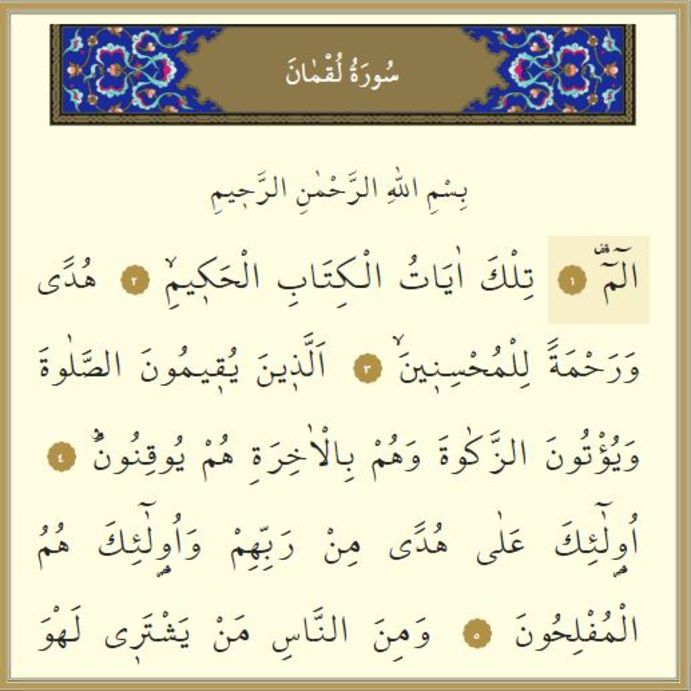 سُورَةُ لُقْمٰانَ
بِسْمِ اللّٰهِ الرَّحْمٰنِ الرَّحٖيمِ
الٓمٓ ۠ ﴿١﴾ تِلْكَ اٰيَاتُ الْكِتَابِ الْحَكٖيمِۙ ﴿٢﴾ هُدًى
وَرَحْمَةً لِلْمُحْسِنٖينَۙ ﴿٣﴾ اَلَّذٖينَ يُقٖيمُونَ الصَّلٰوةَ
وَيُؤْتُونَ الزَّكٰوةَ وَهُمْ بِالْاٰخِرَةِ هُمْ يُوقِنُونَؕ ﴿٤﴾
اُو۬لٰٓئِكَ عَلٰى هُدًى مِنْ رَبِّهِمْ وَاُو۬لٰٓئِكَ هُمُ
الْمُفْلِحُونَ ﴿٥﴾ وَمِنَ النَّاسِ مَنْ يَشْتَرٖي لَهْوَ